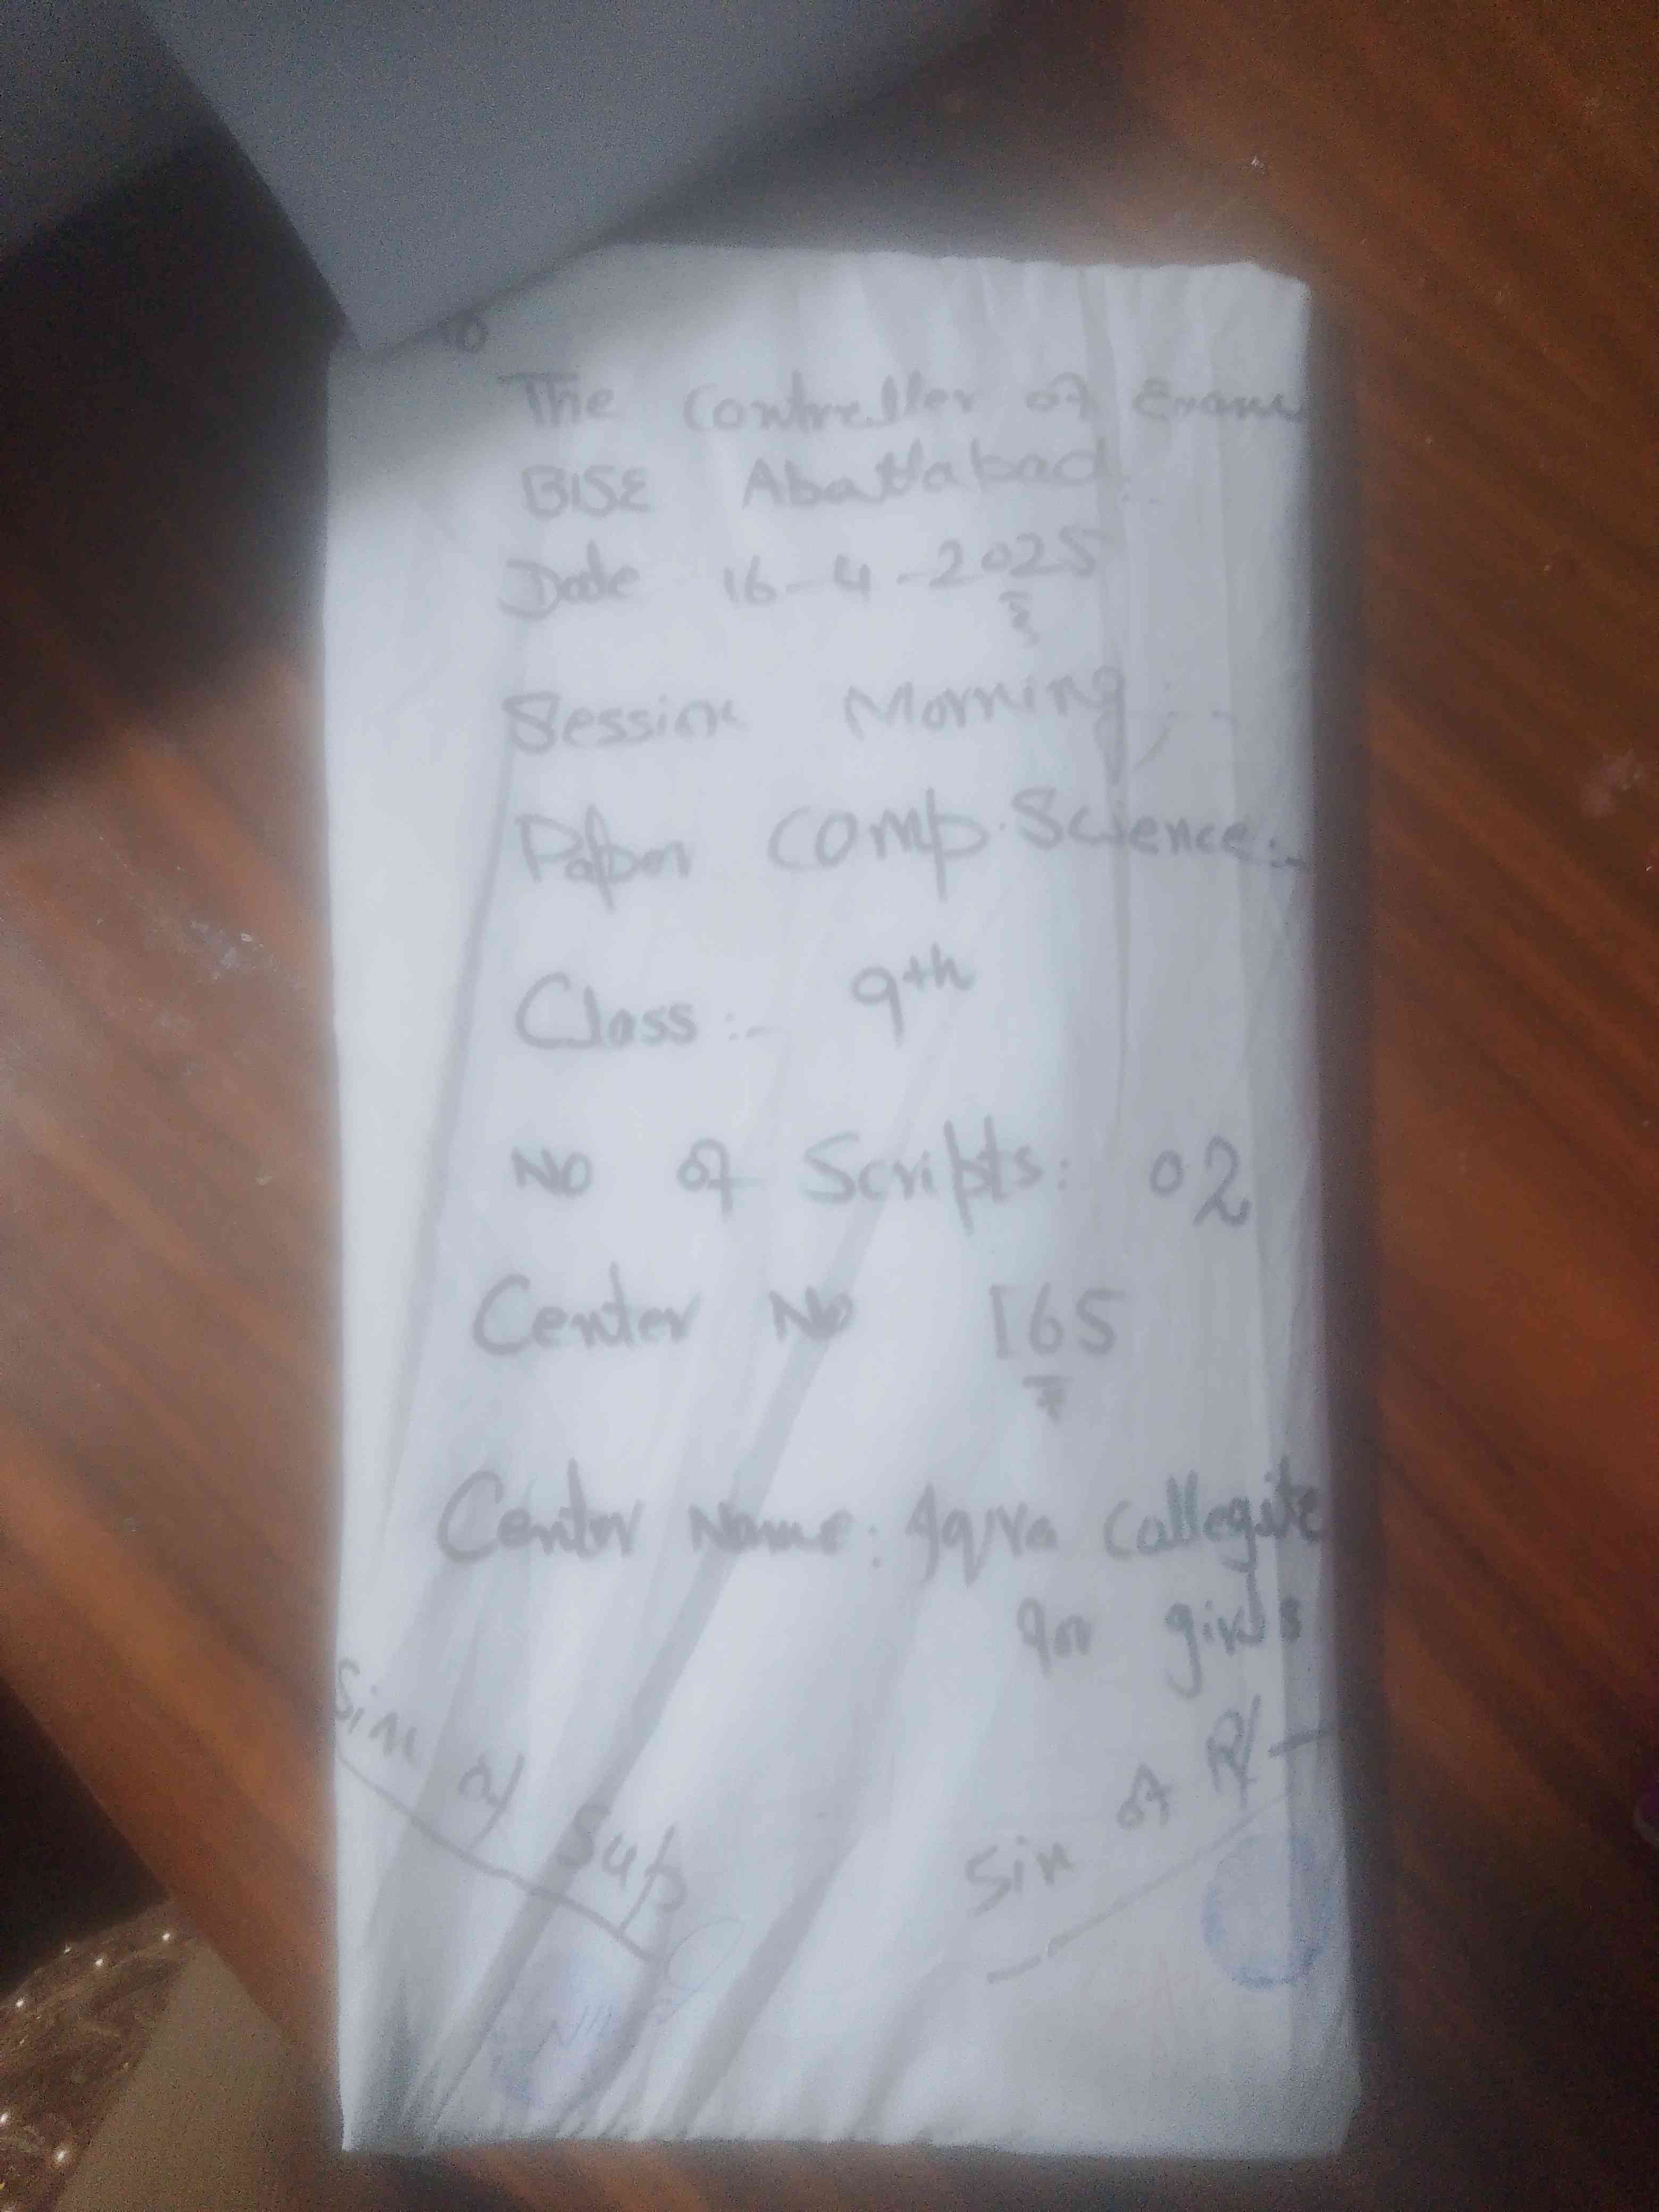 The Controller of Exams
BISE Abattabad
Date 16-4-2025
Session Morning:-
Paper Comp. Science:-
Class:- 9th
No of Scripts: 02
Center No 165
Center Name: Iqra Collegite
for girls
Sin of Sup
Sin of R/I